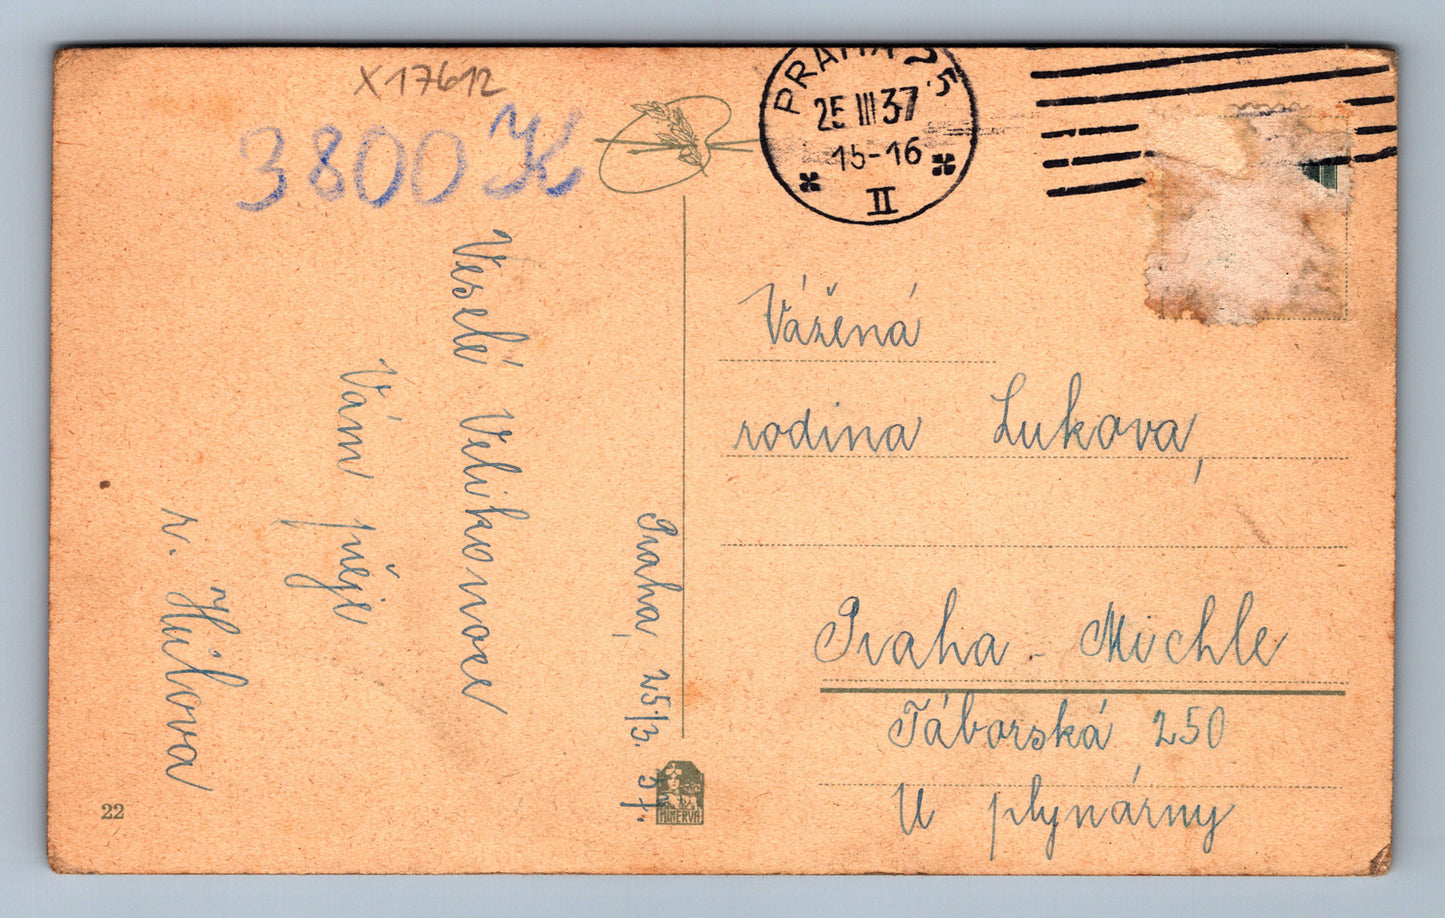 X17612
3800 K
PRAHA 25
25 III 37
15-16
II
Praha, 25./3. 37.
Veselé Velikonoce
Vám přeje
r. Hůlova
Vážená
rodina Lukova,
Praha - Michle
Táborská 250
U plynárny
22
MINERVA